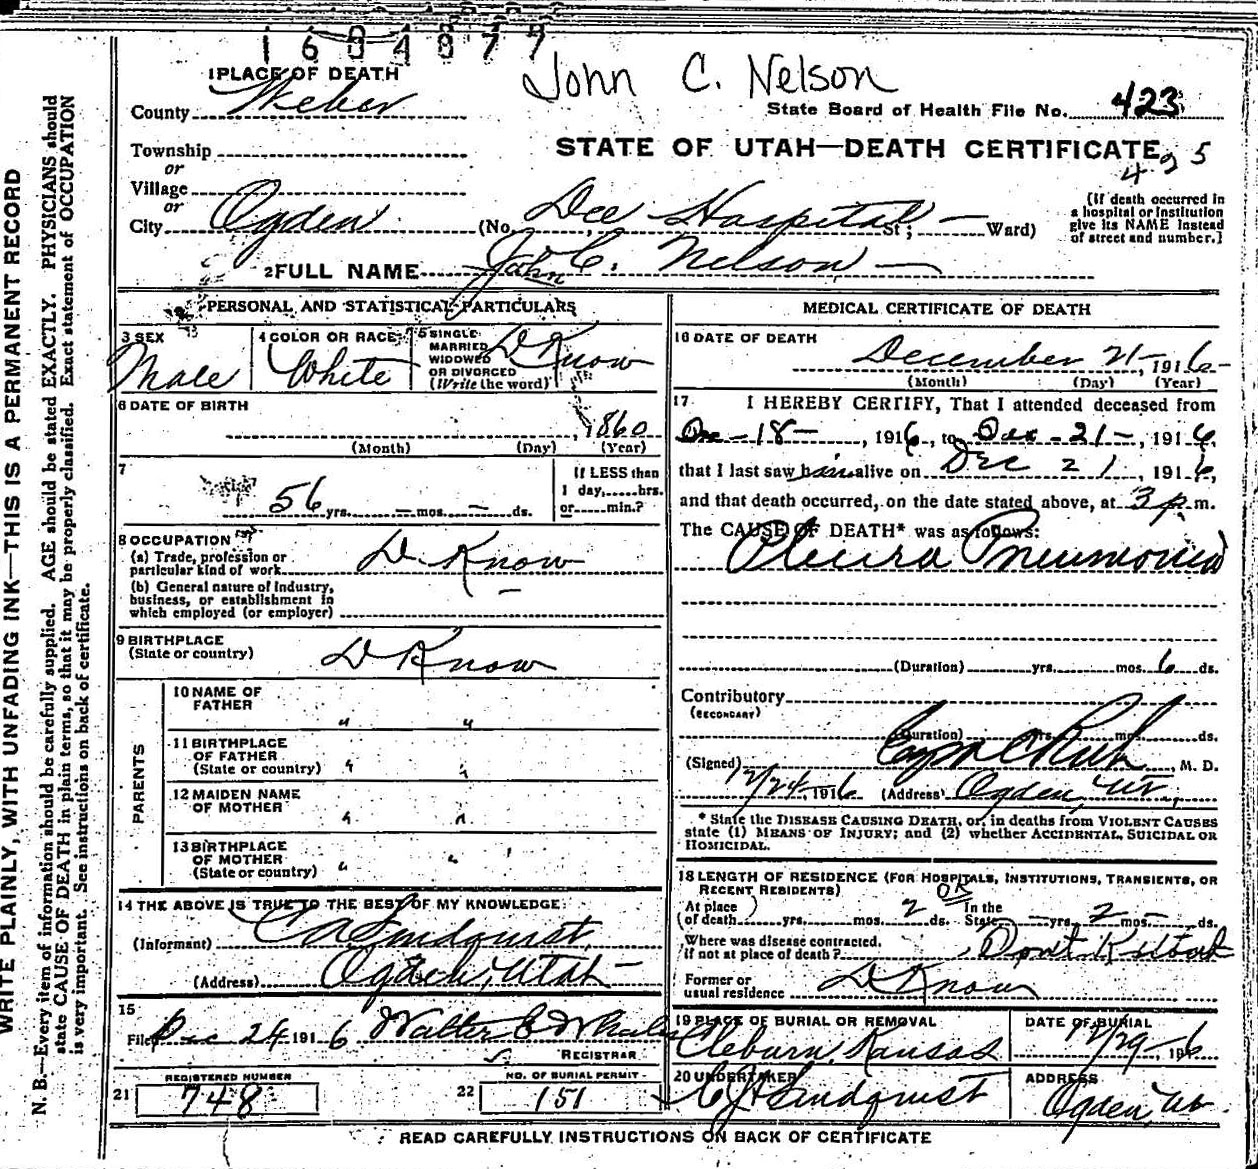 1604877
John C. Nelson
1 PLACE OF DEATH
County Weber
State Board of Health File No. 423
STATE OF UTAH—DEATH CERTIFICATE
425
Township
or
Village
or
City Ogden (No. Dee Hospital St; — Ward)
(If death occurred in
a hospital or institution
give its NAME instead
of street and number.]
2 FULL NAME John C. Nelson
PERSONAL AND STATISTICAL PARTICULARS
3 SEX
Male
4 COLOR OR RACE
White
5 SINGLE
MARRIED
WIDOWED
OR DIVORCED
(Write the word)
D Know
6 DATE OF BIRTH
, 1860
(Month) (Day) (Year)
7
56 yrs. — mos. — ds.
If LESS than
1 day,......hrs.
or......min.?
8 OCCUPATION
(a) Trade, profession or
particular kind of work D Know
(b) General nature of industry,
business, or establishment in
which employed (or employer)
9 BIRTHPLACE
(State or country) D Know
PARENTS
10 NAME OF
FATHER " "
11 BIRTHPLACE
OF FATHER
(State or country) " "
12 MAIDEN NAME
OF MOTHER " "
13 BIRTHPLACE
OF MOTHER
(State or country) " "
14 THE ABOVE IS TRUE TO THE BEST OF MY KNOWLEDGE
(Informant) Lindquist
(Address) Ogden, Utah
15
Filed Dec 24 1916 Walter
REGISTRAR
21 REGISTERED NUMBER
748
22 NO. OF BURIAL PERMIT
151
MEDICAL CERTIFICATE OF DEATH
16 DATE OF DEATH
December 21, 1916
(Month) (Day) (Year)
17 I HEREBY CERTIFY, That I attended deceased from
Dec - 18 -, 1916, to Dec - 21 -, 1916,
that I last saw him alive on Dec 21, 1916,
and that death occurred, on the date stated above, at 3 p. m.
The CAUSE OF DEATH* was as follows:
Pleura Pneumonia
(Duration) yrs. mos. 6 ds.
Contributory
(SECONDARY)
(Duration) yrs. mos. ds.
(Signed) M. D.
12/24, 1916 (Address) Ogden, Ut,
* State the DISEASE CAUSING DEATH, or, in deaths from VIOLENT CAUSES
state (1) MEANS OF INJURY; and (2) whether ACCIDENTAL, SUICIDAL OR
HOMICIDAL.
18 LENGTH OF RESIDENCE (FOR HOSPITALS, INSTITUTIONS, TRANSIENTS, OR
RECENT RESIDENTS) OR
At place
of death yrs. mos. 2 ds. In the
State — yrs. 2 mos — ds.
Where was disease contracted,
if not at place of death? Dont K
Former or
usual residence D Know
19 PLACE OF BURIAL OR REMOVAL
Cleburn, Kansas
DATE OF BURIAL
12/29, 1916
20 UNDERTAKER
Lindquist
ADDRESS
Ogden, Ut
READ CAREFULLY INSTRUCTIONS ON BACK OF CERTIFICATE
WRITE PLAINLY, WITH UNFADING INK—THIS IS A PERMANENT RECORD
N. B.—Every item of information should be carefully supplied. AGE should be stated EXACTLY. PHYSICIANS should
state CAUSE OF DEATH in plain terms, so that it may be properly classified. Exact statement of OCCUPATION
is very important. See instructions on back of certificate.